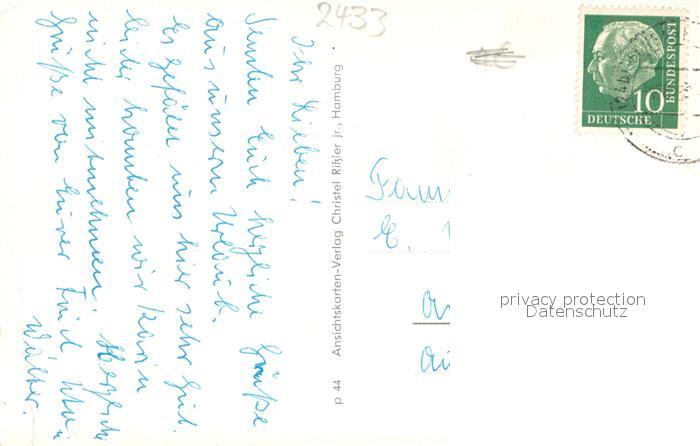 2433
Ihr Lieben!
Senden Euch herzliche Grüße
aus unserm Urlaub.
Es gefällt uns hier sehr gut.
leider konnten wir Karin
nicht mitnehmen. Herzliche
Grüße von Eurer Trud Ute u
Walter.
p 44 Ansichtskarten-Verlag Christel Rißler jr., Hamburg
Fam
E.
DEUTSCHE BUNDESPOST
10
privacy protection
Datenschutz